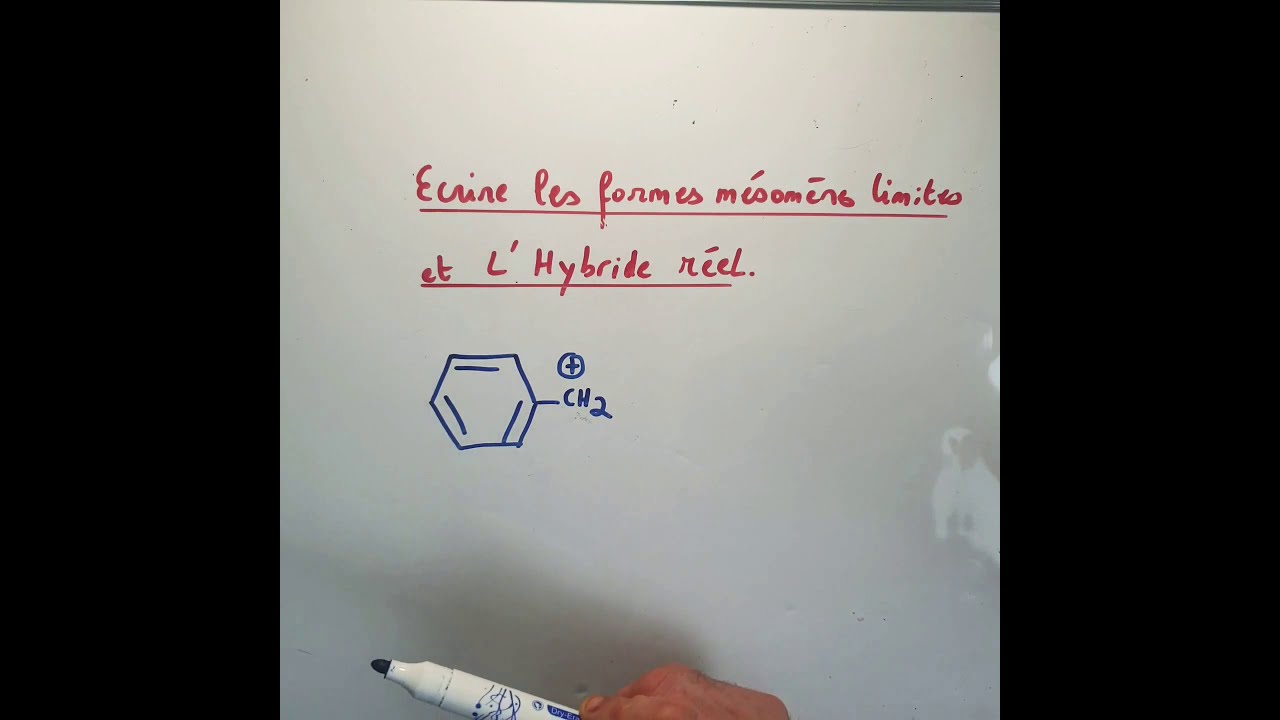 Ecrire les formes mésomères limites
et L'Hybride réel.
⊕
CH2